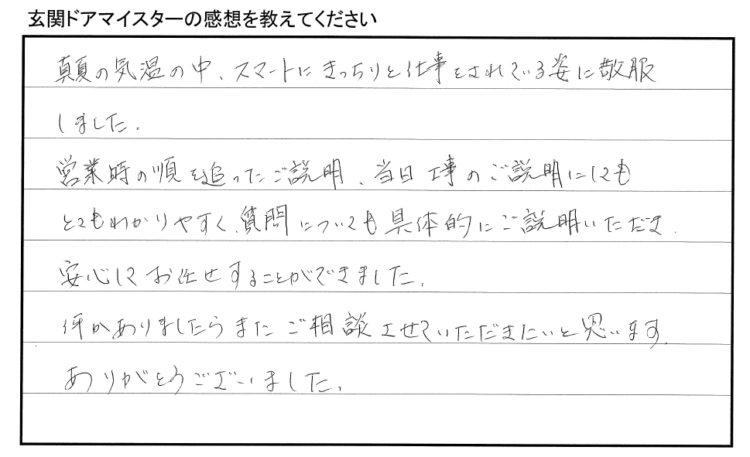 玄関ドアマイスターの感想を教えてください
真夏の気温の中、スマートにきっちりと仕事をされている姿に敬服
しました。
営業時の順を追ったご説明、当日工事のご説明にしても
とてもわかりやすく、質問についても具体的にご説明いただき、
安心してお任せすることができました。
何かありましたらまたご相談させていただきたいと思います。
ありがとうございました。